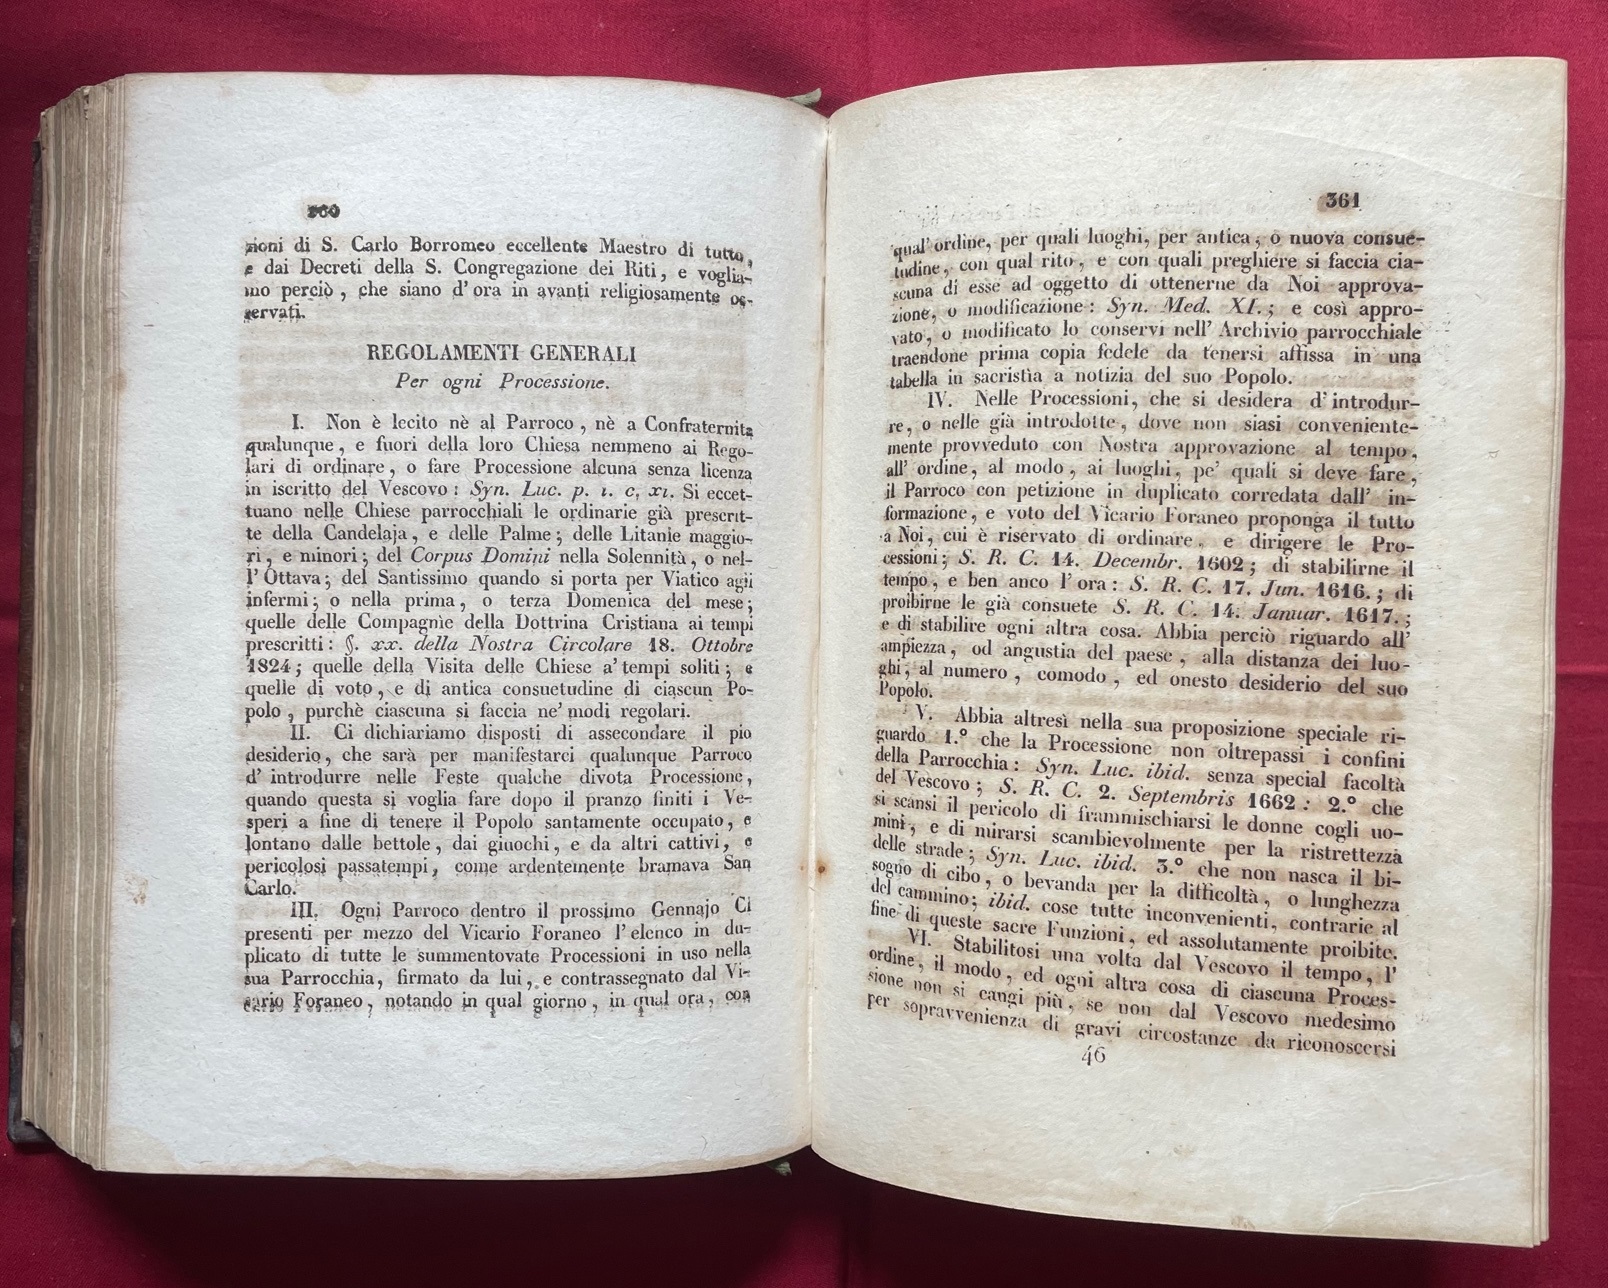 360
zioni di S. Carlo Borromeo eccellente Maestro di tutto,
e dai Decreti della S. Congregazione dei Riti, e voglia-
mo perciò, che siano d'ora in avanti religiosamente os-
servati.
REGOLAMENTI GENERALI
Per ogni Processione.
I. Non è lecito nè al Parroco, nè a Confraternita
qualunque, e fuori della loro Chiesa nemmeno ai Rego-
lari di ordinare, o fare Processione alcuna senza licenza
in iscritto del Vescovo: Syn. Luc. p. 1. c, xi. Si eccet-
tuano nelle Chiese parrocchiali le ordinarie già prescrit-
te della Candelaja, e delle Palme; delle Litanie maggio-
ri, e minori; del Corpus Domini nella Solennità, o nel-
l'Ottava; del Santissimo quando si porta per Viatico agli
infermi; o nella prima, o terza Domenica del mese;
quelle delle Compagnie della Dottrina Cristiana ai tempi
prescritti: §. xx. della Nostra Circolare 18. Ottobre
1824; quelle della Visita delle Chiese a' tempi soliti; e
quelle di voto, e di antica consuetudine di ciascun Po-
polo, purchè ciascuna si faccia ne' modi regolari.
II. Ci dichiariamo disposti di assecondare il pio
desiderio, che sarà per manifestarci qualunque Parroco
d'introdurre nelle Feste qualche divota Processione,
quando questa si voglia fare dopo il pranzo finiti i Ve-
speri a fine di tenere il Popolo santamente occupato, e
lontano dalle bettole, dai giuochi, e da altri cattivi, e
pericolosi passatempi, come ardentemente bramava San
Carlo.
III. Ogni Parroco dentro il prossimo Gennajo Ci
presenti per mezzo del Vicario Foraneo l'elenco in du-
plicato di tutte le summentovate Processioni in uso nella
sua Parrocchia, firmato da lui, e contrassegnato dal Vi-
cario Foraneo, notando in qual giorno, in qual ora, con
361
qual'ordine, per quali luoghi, per antica, o nuova consue-
tudine, con qual rito, e con quali preghiere si faccia cia-
scuna di esse ad oggetto di ottenerne da Noi approva-
zione, o modificazione: Syn. Med. XI.; e così appro-
vato, o modificato lo conservi nell'Archivio parrocchiale
traendone prima copia fedele da tenersi affissa in una
tabella in sacristia a notizia del suo Popolo.
IV. Nelle Processioni, che si desidera d'introdur-
re, o nelle già introdotte, dove non siasi conveniente-
mente provveduto con Nostra approvazione al tempo,
all'ordine, al modo, ai luoghi, pe' quali si deve fare,
il Parroco con petizione in duplicato corredata dall'in-
formazione, e voto del Vicario Foraneo proponga il tutto
a Noi, cui è riservato di ordinare, e dirigere le Pro-
cessioni; S. R. C. 14. Decembr. 1602; di stabilirne il
tempo, e ben anco l'ora: S. R. C. 17. Jun. 1616.; di
proibirne le già consuete S. R. C. 14. Januar. 1617.;
e di stabilire ogni altra cosa. Abbia perciò riguardo all'
ampiezza, od angustia del paese, alla distanza dei luo-
ghi, al numero, comodo, ed onesto desiderio del suo
Popolo.
V. Abbia altresì nella sua proposizione speciale ri-
guardo 1.° che la Processione non oltrepassi i confini
della Parrocchia: Syn. Luc. ibid. senza special facoltà
del Vescovo; S. R. C. 2. Septembris 1662: 2.° che
si scansi il pericolo di frammischiarsi le donne cogli uo-
mini, e di mirarsi scambievolmente per la ristrettezza
delle strade; Syn. Luc. ibid. 3.° che non nasca il bi-
sogno di cibo, o bevanda per la difficoltà, o lunghezza
del cammino; ibid. cose tutte inconvenienti, contrarie al
fine di queste sacre Funzioni, ed assolutamente proibite.
VI. Stabilitosi una volta dal Vescovo il tempo, l'
ordine, il modo, ed ogni altra cosa di ciascuna Proces-
sione non si cangi più, se non dal Vescovo medesimo
per sopravvenienza di gravi circostanze da riconoscersi
46